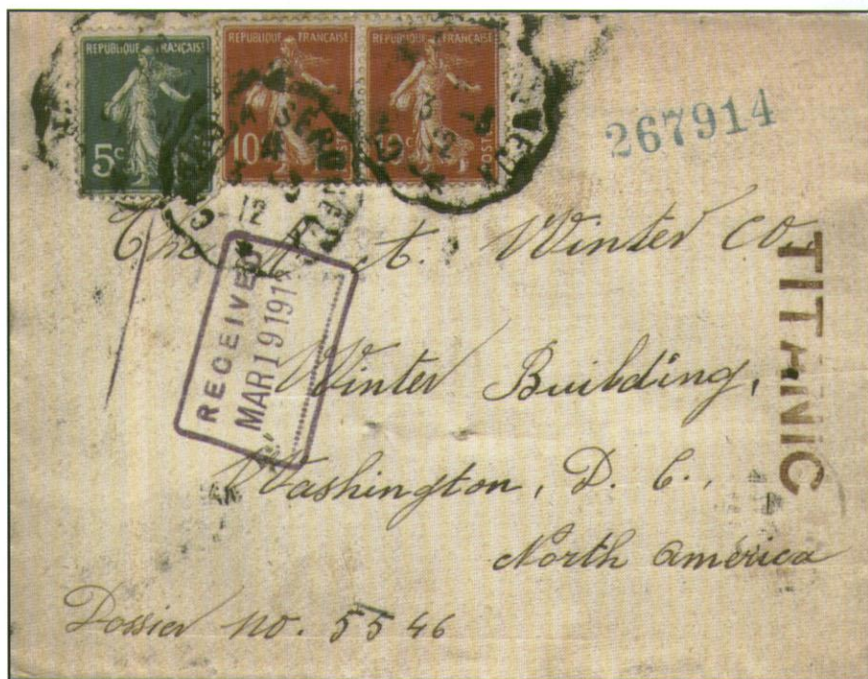 REPUBLIQUE FRANÇAISE
5c
REPUBLIQUE FRANÇAISE
10c
REPUBLIQUE FRANÇAISE
10c
POSTES
4
3
12
3
12
267914
The A. Winter Co.
TITANIC
RECEIVED
MAR 19 191
Winter Building,
Washington, D. C.,
North America
Dossier no. 5546